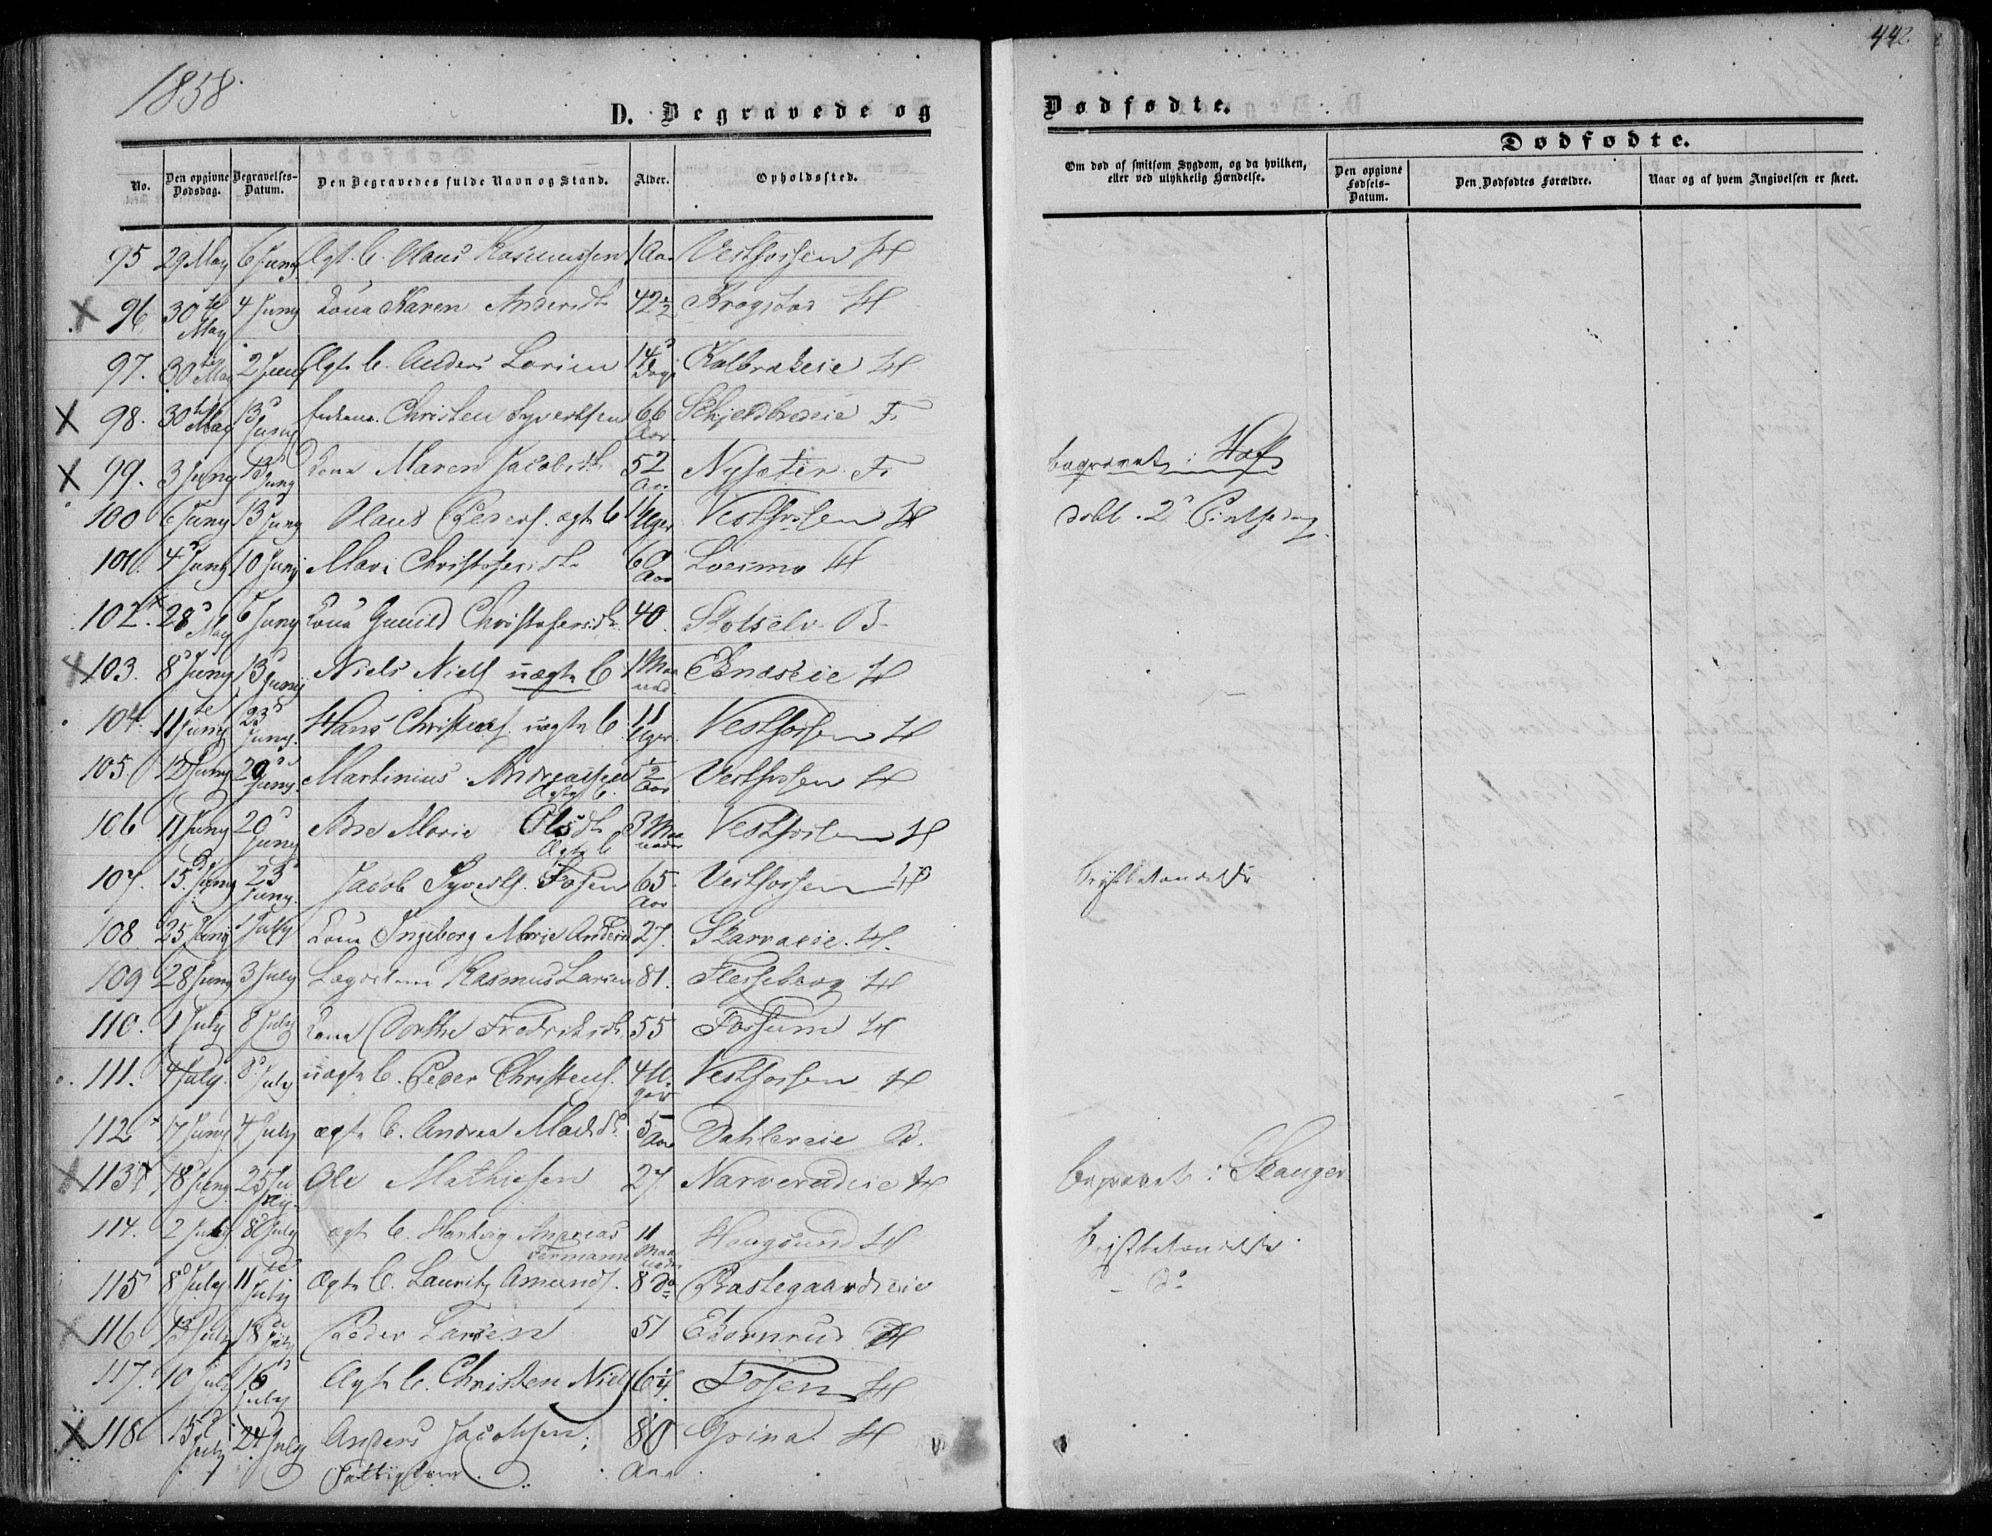 1858.
442
D. Begravede og
Dødfødte.
No.
Den opgivne Dødsdag.
Begravelses-Datum.
Den Begravedes fulde Navn og Stand.
Alder.
Opholdssted.
Om død af smitsom Sygdom, og da hvilken, eller ved ulykkelig Hændelse.
Dødfødte.
Den opgivne Fødsels-Datum.
Den Dødfødtes Forældre.
Naar og af hvem Angivelsen er skeet.
95 29 May 6 Juny Ægt. C. Olaus Rasmussen 1 Aar Vestfossen H
96 30te May 4 Juny Kona Karen Andersd. 42½ Krogstad H
97. 30te May 2 Juny Ægte C. Anders Larsen 14 Dage Kolbrækeie H
98. 30te May 13 Juny Christen Syvertsen 66 Aar F.
99. 3 Juny 13 Juny Kona Maren Jacobsd. 52 Aar Nysæter F. begravet i Hof
100 6 Juny 13 Juny Olaus Peders. ægte C 11 Uger Vestfossen H døbt. 2 Pintsedag.
101. 4 Juny 10 Juny Mari Christofersd. 60 Aar Loesmo H
102. 28 May 6 Juny Kona Gunild Christofersd. 40. Skotselv B
103. 8 Juny 13 Juny Niels Niels. uægte C 1 Maaned H
104. 11te Juny 23 Juny. Hans Christens. uægte C. 11 Uger. Vestfossen H
105. 12 Juny 20 Juny. Martinius Andreassen Ægte C. ½ Aar Vestfossen H
106 11 Juny 20 Juny Ane Marie Olsd. Ægte C 3 Maaneder Vestfossen H
107. 15. Juny 23 Juny. Jacob Syverts. Fosen 65. Aar Vestfossen H Brystbetændelse
108 25 Juny 1 July Kona Ingeborg Marie Andersd 27. Skarraeie. H.
109 28 Juny 3 July Lægdslem Rasmus Larsen 81. Flesseberg H
110. 1 July 8 July Kona Dorthe Fredriksd. 55 Fossum H
111. 4 July. 8 July uægte C. Peder Christens. 4 Uger Vestfossen H
112 17 Juny 4 July ægte C. Andrea Madsd. 5 Aar Dahlereie B.
113 18 Juny 25 Juny Ole Mathisen 27. Narverudeie H Begravet i Skauger
114. 2 July 8 July ægte C. Hartvig Andreas Hermann 11 Maaneder Hougsund H Brystbetændelse
115 8 July 11te July Ægte C. Lauritz Amunds. 8 Do Bastegaardseie Do
116 13 July 18de July Peder Larsen 51 Ekornrud H
117. 10 July 18 July Ægte C. Christen Niels 6¼. Fosen H
118 15 July 24 July Anders Jacobsen; Fattiglem. 80 Aar. Grina H